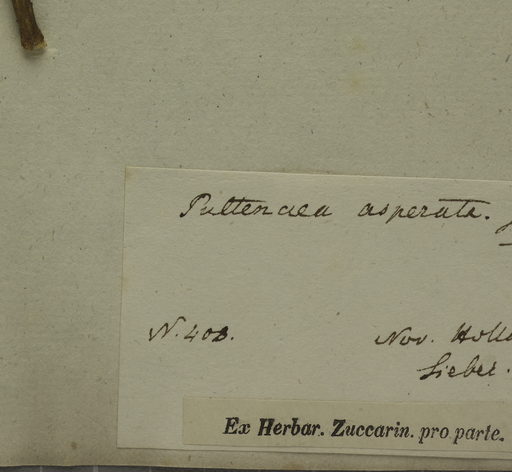 Pultenaea asperata.
N. 408. Nov. Holl
Sieber.
Ex Herbar. Zuccarin. pro parte.